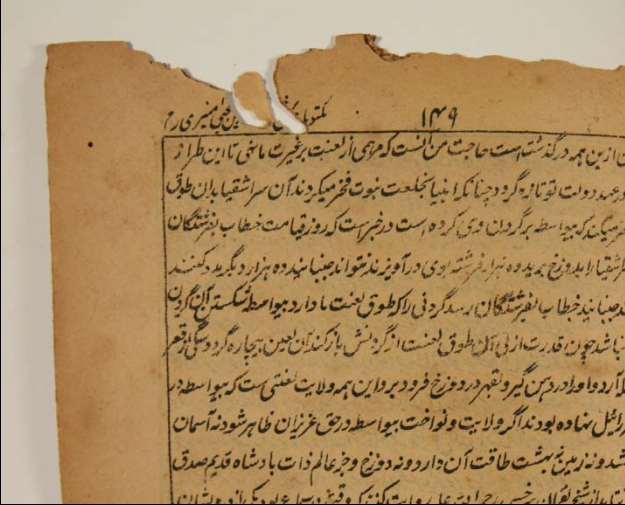 ۱۴۹ مکتوبات یحیی منیری رح
ازین همه درگذشته است حاجت من آنست که مرهمی از لعنت بر غیرت ما نهی تا این طراز
در عهد دولت تو تازه گردد چنانکه انبیا بخلعت نبوت فخر میکردند آن سر اشقیا بدان طوق
که بیواسطه برگردان وی کرده است در خبرست که روز قیامت خطاب بفرشتگان
اشقیا را بدوزخ برید ده هزار فرشته بوی در آویزند نتوانند جنبانید ده هزار دیگر مدد کنند
جنبانید خطاب بفرشتگان رسد گردنی را که طوق لعنت ما دارد بیواسطه شکستن آن گردن
باشد چون قدرت ازلی آن طوق لعنت از گردنش باز کند آن لعین بیچاره گردد سگی از قعر
آرد و او را در دهن گیرد و بقعر دوزخ فرود برد این همه ولایت لعنتی است که بیواسطه در
نهاده بودند اگر ولایت و نواخت بیواسطه در حق عزیزان ظاهر شود نه آسمان
نه زمین نه بهشت طاقت آن دارد و نه دوزخ و جز عالم ذات پادشاه قدیم صدق